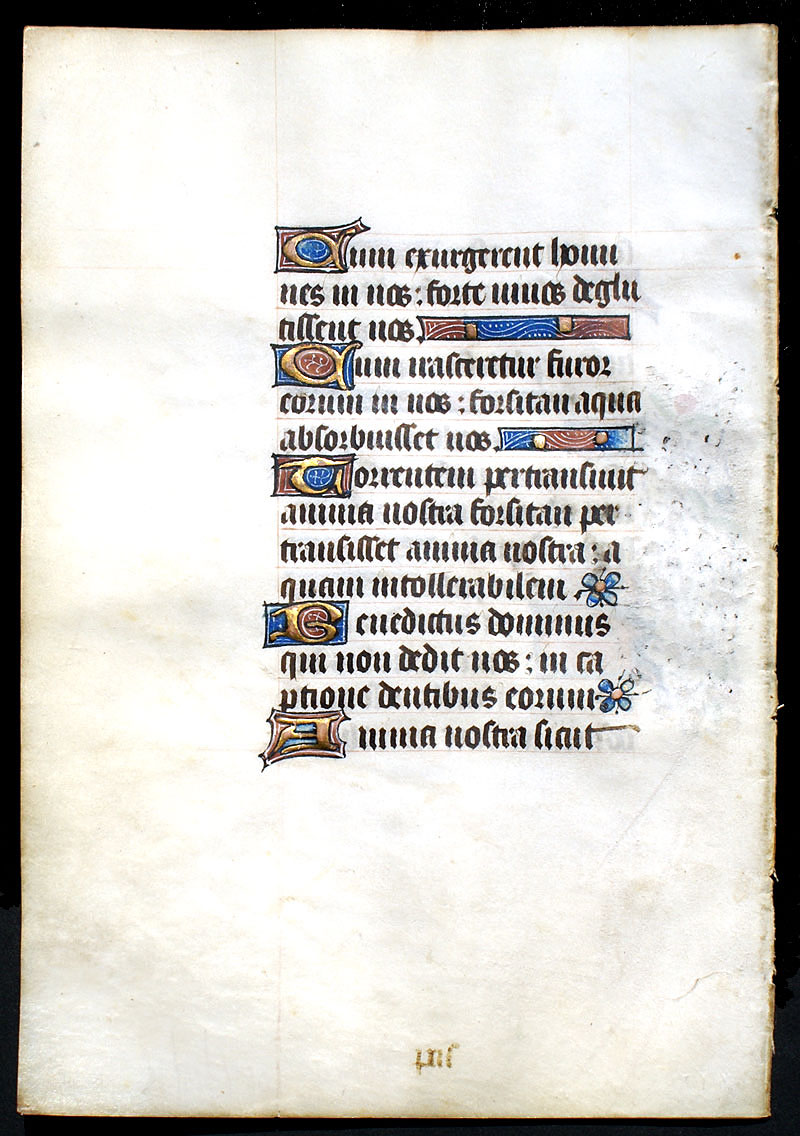 Cum exurgerent homi
nes in nos : forte uiuos deglu
tissent nos.
Cum irasceretur furor
eorum in nos : forsitan aqua
absorbuisset nos.
Torrentem pertransiuit
anima nostra forsitan per
transisset anima nostra : a
quam intollerabilem .
Benedictus dominus
qui non dedit nos : in ca
ptione dentibus eorum
Anima nostra sicut